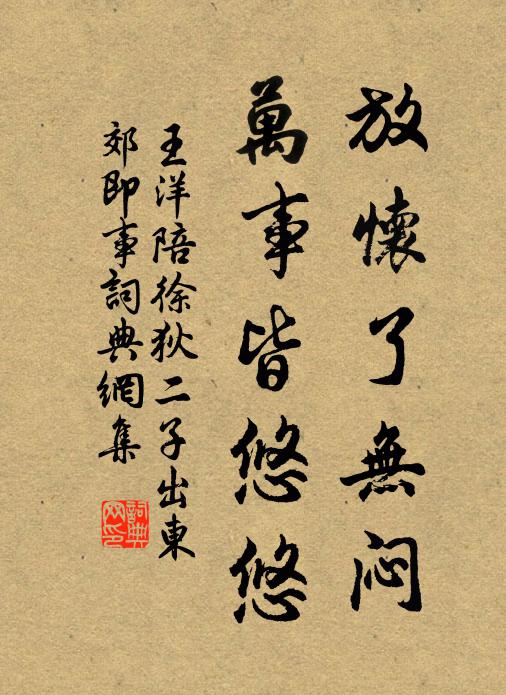 放懷了無悶
萬事皆悠悠
王洋陪徐狄二子出東
郊即事詞典網集
詞典网印